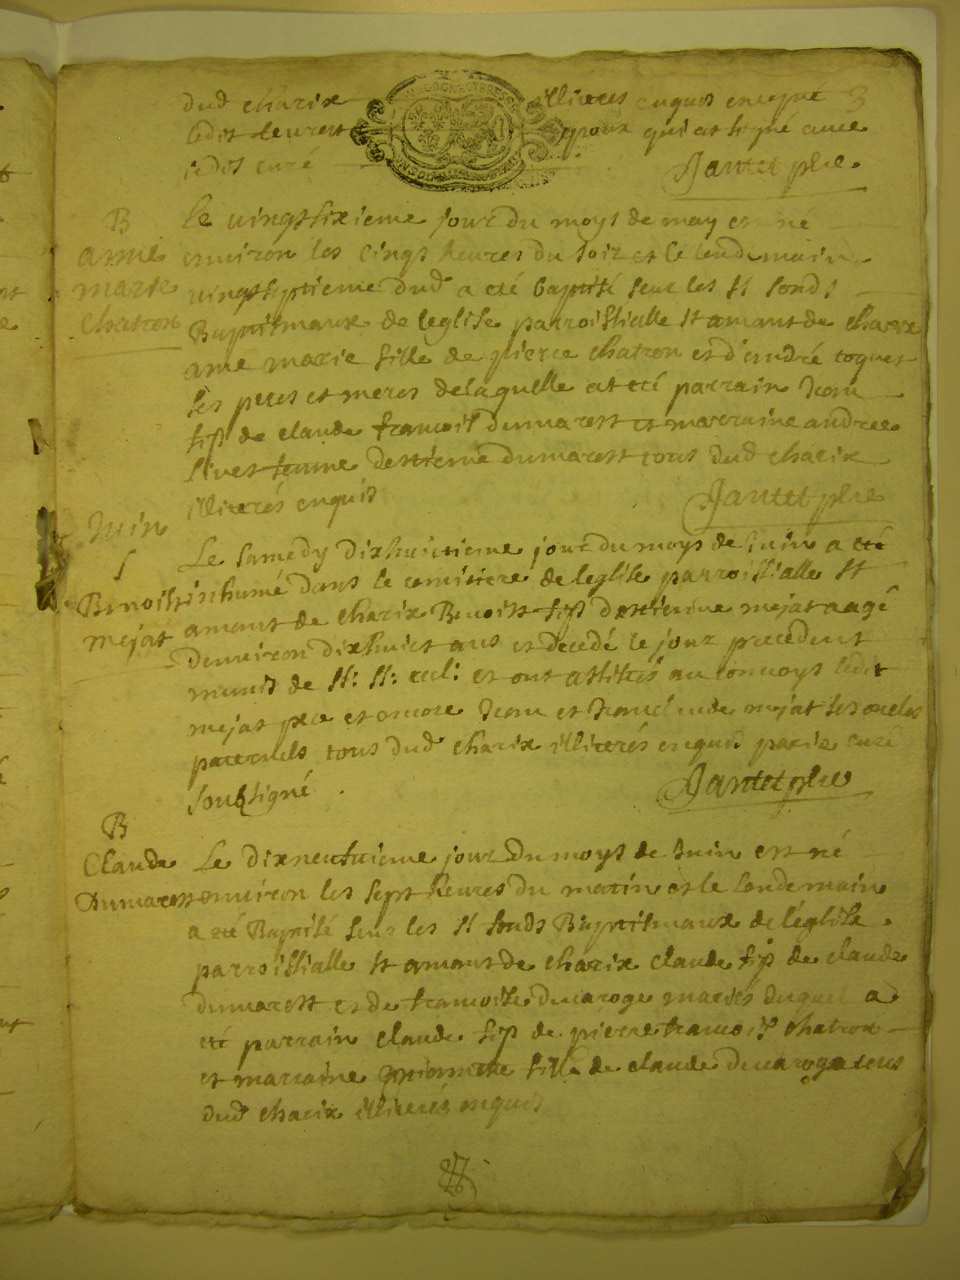 dud charix illiteres enquis excepte 3
ledit leurest epoux qui at signé avec
iedit curé
Jantet pbre
B
anne
marie
chatron
Le vingtsixieme jour du moys de may est né
environ les cinqs heures du soir et le lendemain
vingtseptieme dud a eté baptisé seur les st fonds
Baptismaux de leglise parroissialle st amant de charix
anne marie fille de pierre chatron et d'andré toquet
ses peres et meres de laquelle at eté parrain Jean
fils de claude francois dumarest et marraine andree
livet femme destienne dumarest tous dud charix
illiterés enquis
Jantet pbre
Juin
S
Benoist
mejat
Le samedy dixhuictieme jour du moys de Juin a eté
inhumé dans le cemistere de leglise parroissialle st
amant de charix Benoist fils destienne mejat aagé
denviron dixhuict ans et decedé le jour precedent
munis de SS: SS: eccl: et ont assistés au convoys ledit
mejat pere et encore Jean et Jean claude mejat ses oncles
paternels tous dud charix illiterés enquis par ie curé
soubsigné
Jantet pbre
B
Claude
Dumarest
Le dixneufvieme jour du moys de Juin est né
environ les sept heures du matin et le lendemain
a eté Baptisé seur les st fonds Baptismaux de léglise
parroissialle st amant de charix claude fils de claude
dumarest et de francoise ducaroge mariés duquel a
eté parrain claude fils de pierre francois chatron
et marraine fille de claude ducaroge tous
dud charix illiterés enquis